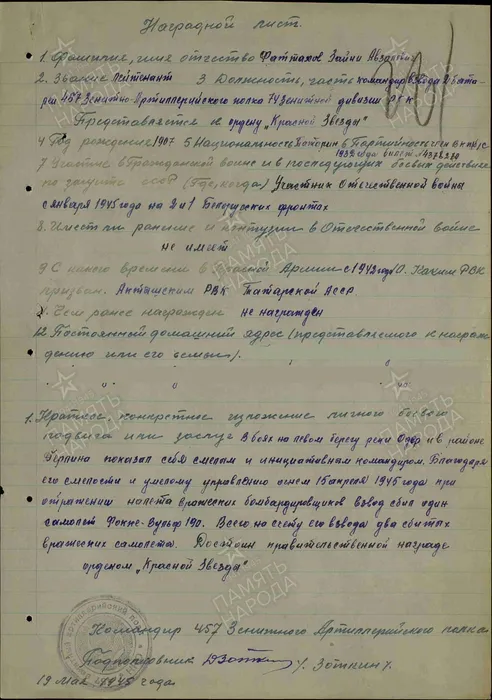 Наградной лист.
1. Фамилия, имя отчество Фаттахов Зайни
2. Звание Лейтенант 3 Должность, часть командир взвода
457 Зенитно-Артиллерийского полка 74 Зенитной дивизии РГК
Представляется к ордену „Красной Звезды"
4 Год рождения 1907 5 Национальность Татарин 6 Партийность чл ВКП/б/ с
1939 года
7. Участие в Гражданской войне и в последующих боевых действиях
по защите СССР (Где, когда) Участник Отечественной войны
с января 1945 года на 2 и 1 Белорусских фронтах
8. Имеет ли ранение и контузии в Отечественной войне
не имеет
9 С какого времени в Красной Армии с 1942 года 10. Каким РВК
призван. Акташским РВК Татарской АССР
Чем ранее награжден не награжден
12 Постоянный домашний адрес (представляемого к награж-
дению или его семьи).
1. Краткое, конкретное изложение личного боевого
подвига или заслуг В боях на левом берегу реки Одер и в районе
Берлина показал себя смелым и инициативным командиром. Благодаря
его смелости и умелому управлению огнем 15 апреля 1945 года при
отражении налета вражеских бомбардировщиков взвод сбил один
самолет Фокке-Вульф 190. Всего на счету его взвода два сбитых
вражеских самолета. Достоин правительственной награде
орденом „Красной Звезды"
Командир 457 Зенитного Артиллерийского полка
Подполковник /. Зоткин /.
19 Мая 1945 года
ПАМЯТЬ НАРОДА